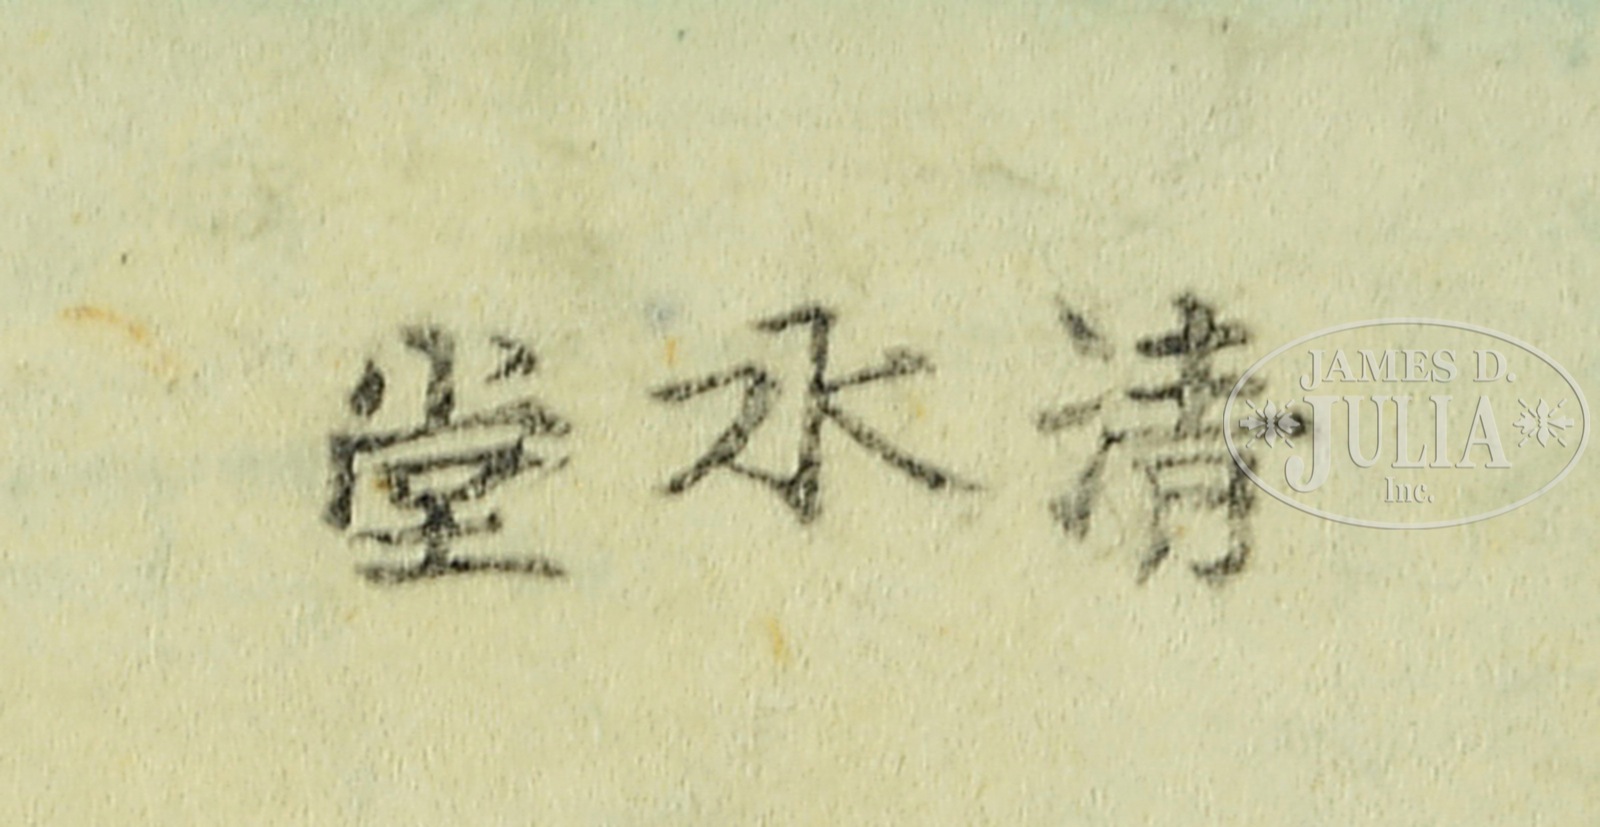 清永堂
JAMES D.
JULIA
Inc.